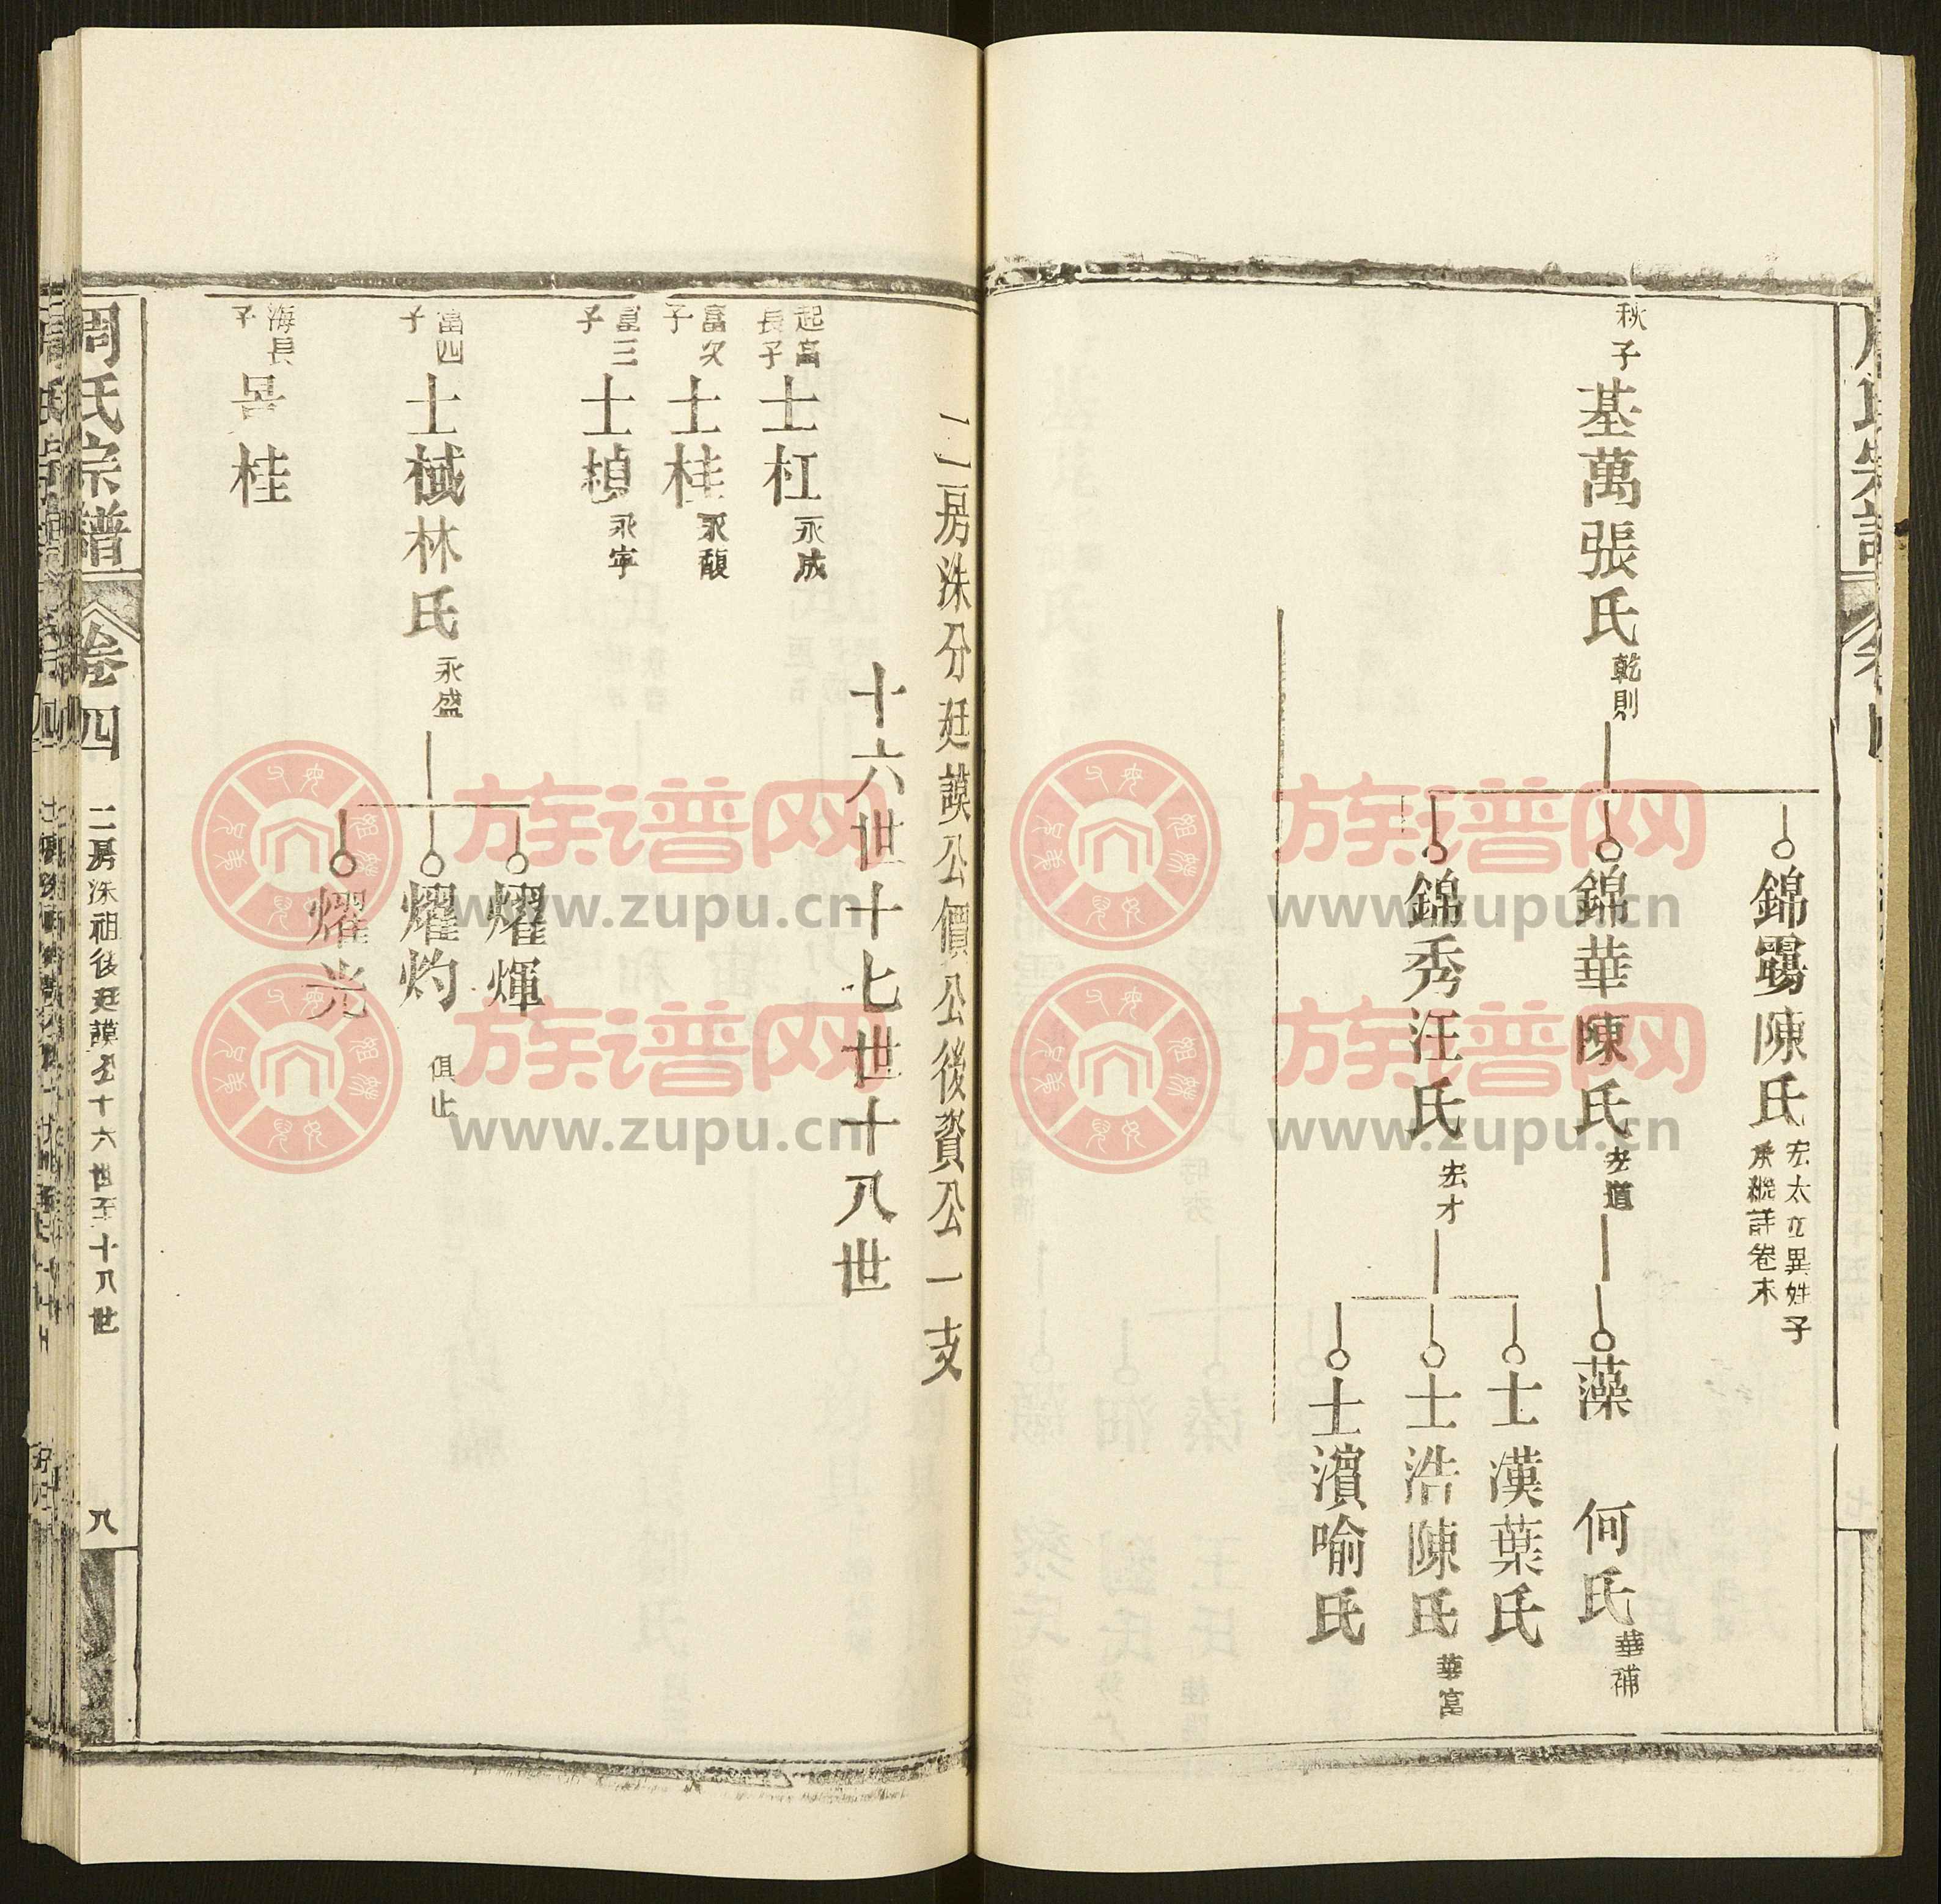 秋子
基萬張氏
乾則
錦𩃀陳氏
宏太立異姓子
承繼詳卷末
錦華陳氏
宏道
藻 何氏
華補
錦秀汪氏
宏才
士漢葉氏
士浩陳氏
華富
士濵喻氏
二房洙分廷謨公價公後資公一支
十六世十七世十八世
起富長子
士杠
永成
富次子
士桂
永馥
富三子
士楨
永寜
富四子
士棫林氏
永盛
耀煇
耀灼
俱止
耀光
海長子
桂
周氏宗譜
卷四
二房洙祖後廷謨公十六世至十八世
八
族谱网
www.zupu.cn
族谱网
www.zupu.cn
族谱网
www.zupu.cn
族谱网
www.zupu.cn